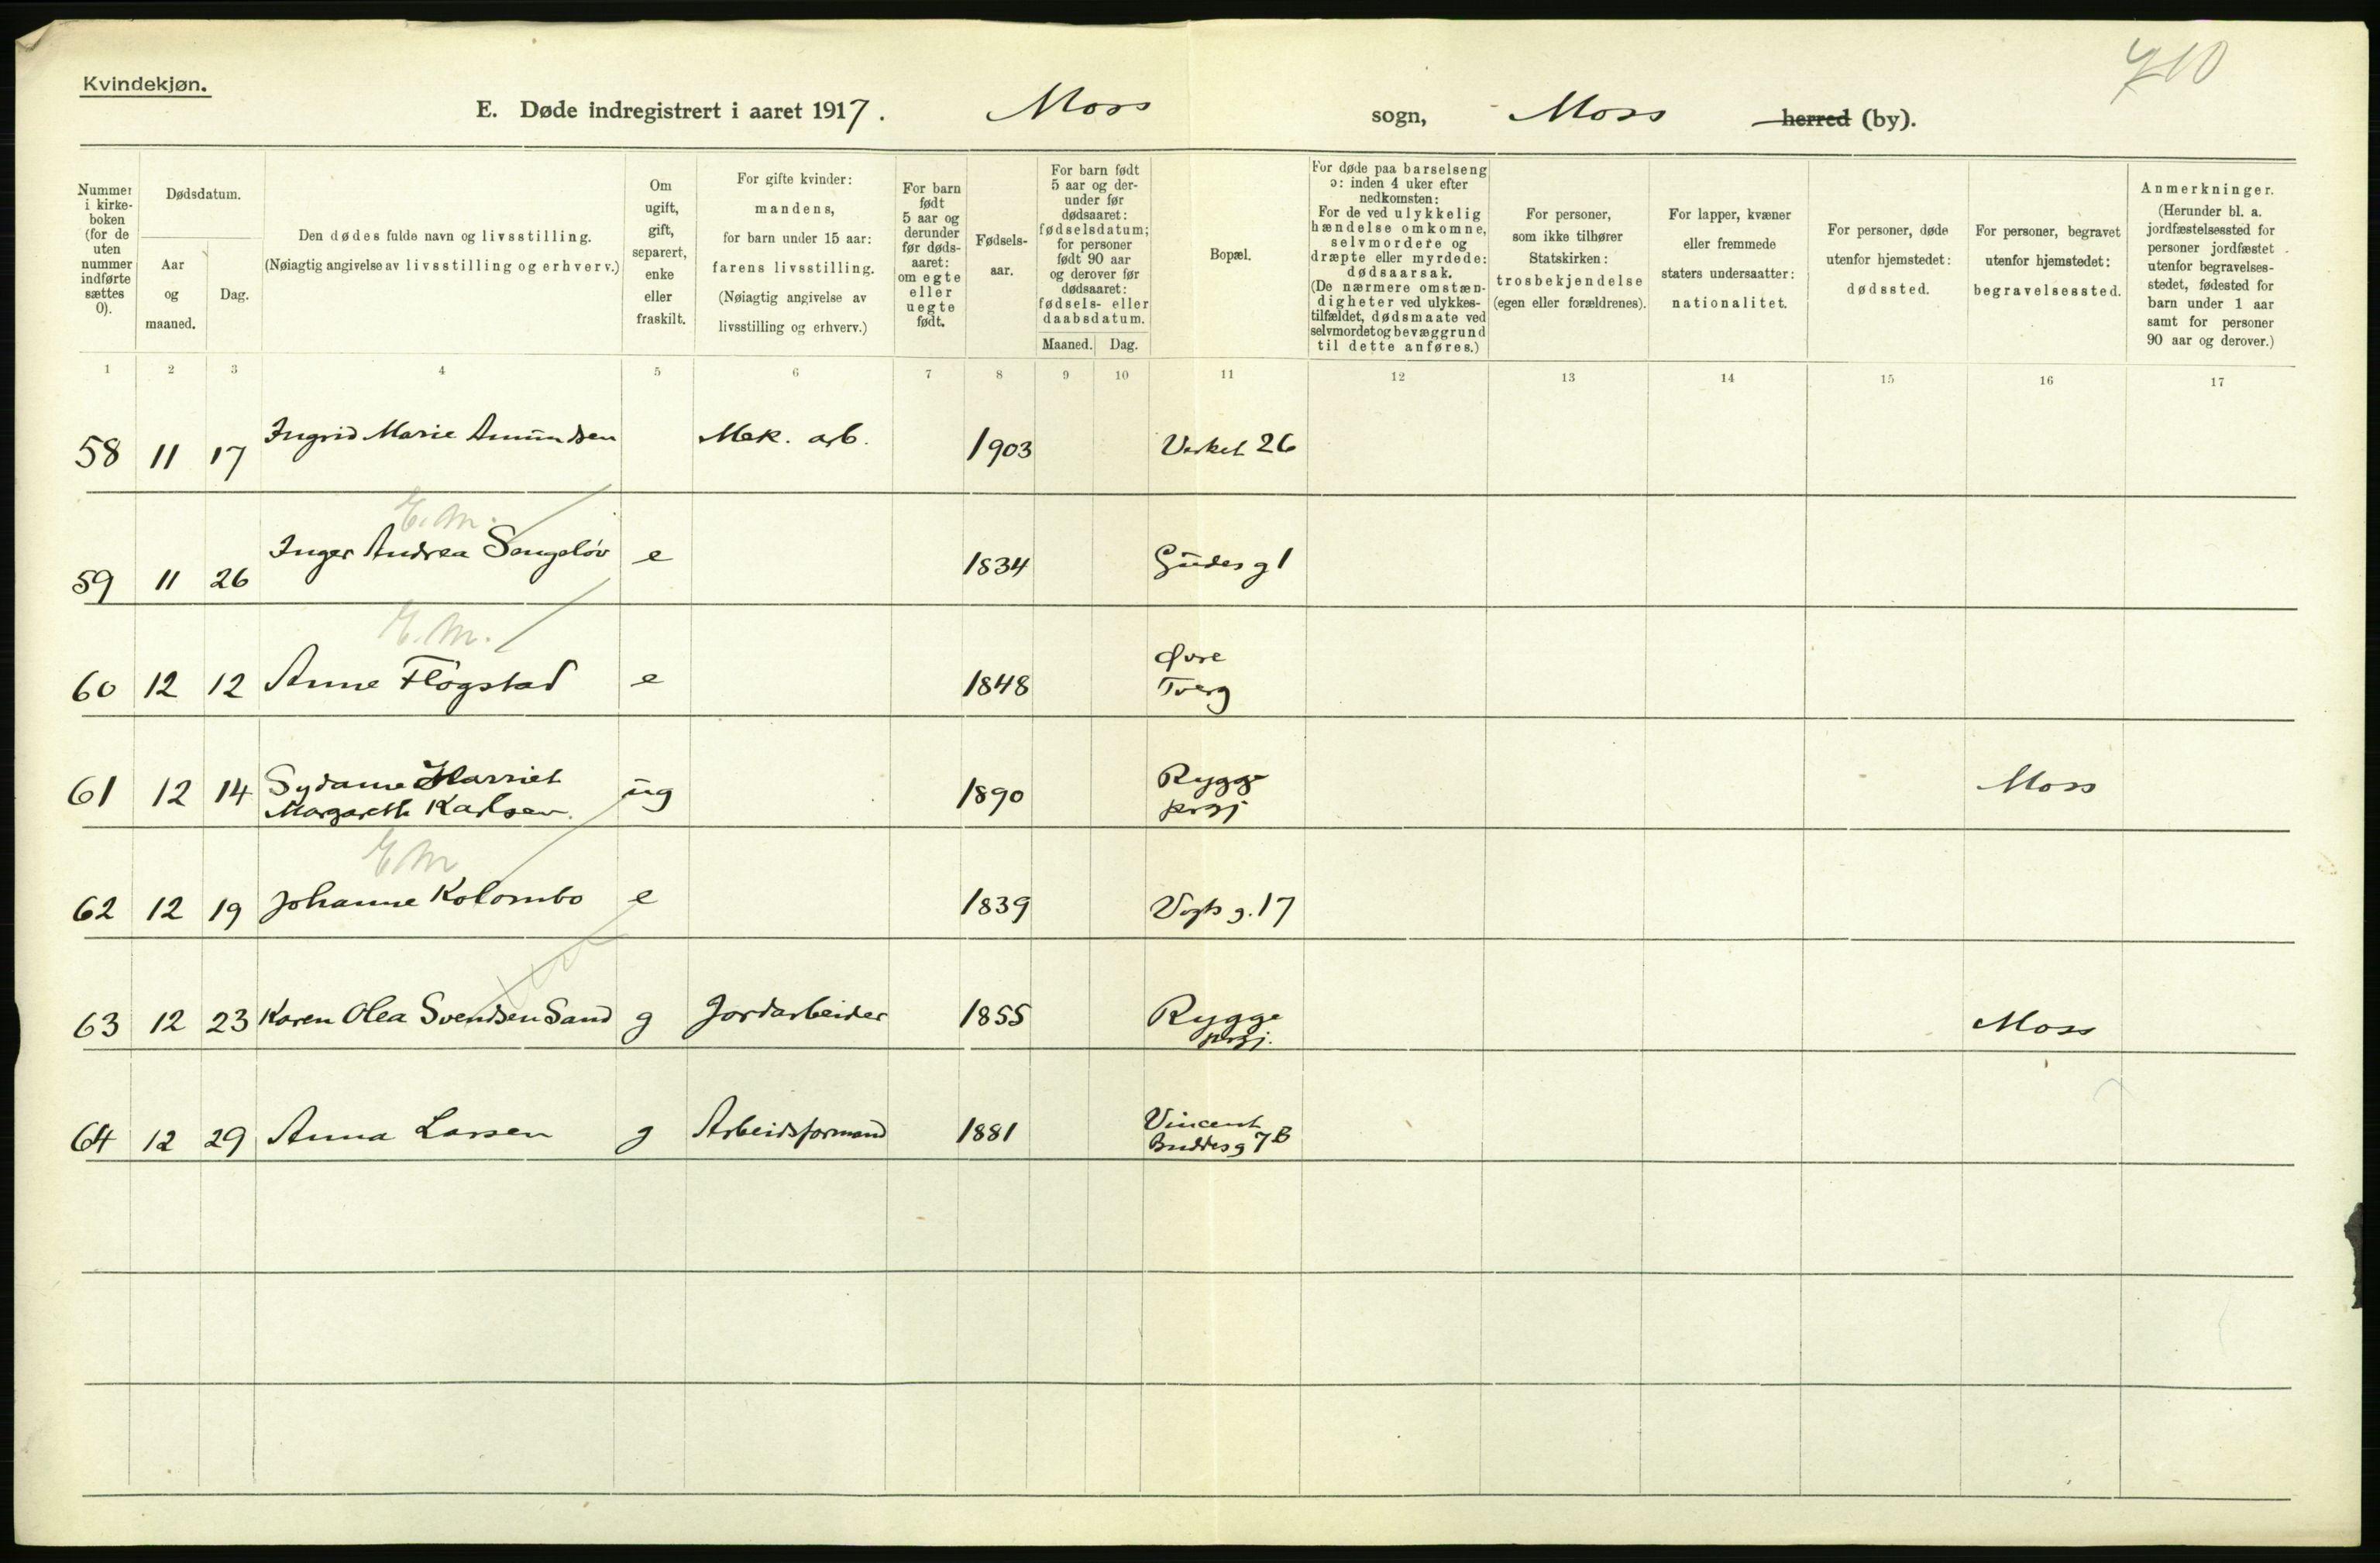 710
Kvindekjøn.
E. Døde indregistrert i aaret 1917. Moss sogn, Moss herred (by).
Nummer i kirke-boken (for de uten nummer indførte sættes 0).
Dødsdatum.
Aar og maaned.
Dag.
Den dødes fulde navn og livsstilling.
(Nøiagtig angivelse av livsstilling og erhverv.)
Om ugift, gift, separert, enke eller fraskilt.
For gifte kvinder:
mandens,
for barn under 15 aar:
farens livsstilling.
(Nøiagtig angivelse av
livsstilling og erhverv.)
For barn født 5 aar og derunder før døds-aaret: om egte eller uegte født.
Fødsels-aar.
For barn født
5 aar og der-
under før
dødsaaret:
fødselsdatum;
for personer
født 90 aar
og derover før
dødsaaret:
fødsels- eller
daabsdatum.
Maaned. Dag.
Bopæl.
For døde paa barselseng
ɔ: inden 4 uker efter
nedkomsten:
For de ved ulykkelig
hændelse omkomne,
selvmordere og
dræpte eller myrdede:
dødsaarsak.
(De nærmere omstæn-
digheter ved ulykkes-
tilfældet, dødsmaate ved
selvmordet og bevæggrund
til dette anføres.)
For personer,
som ikke tilhører
Statskirken:
trosbekjendelse
(egen eller forældrenes).
For lapper, kvæner
eller fremmede
staters undersaatter:
nationalitet.
For personer, døde
utenfor hjemstedet:
dødssted.
For personer, begravet
utenfor hjemstedet:
begravelsessted.
Anmerkninger.
(Herunder bl. a.
jordfæstelsessted for
personer jordfæstet
utenfor begravelses-
stedet, fødested for
barn under 1 aar
samt for personer
90 aar og derover.)
1 2 3 4 5 6 7 8 9 10 11 12 13 14 15 16 17
58 11 17 Ingrid Marie Amundsen Mek. arb. 1903 Verket 26
E.M.
59 11 26 Inger Andrea Sengeløv e 1834 Gudes g 1
E.M.
60 12 12 Anne Flogstad e 1848 Øvre
Tverg
61 12 14 Sydanne Harriet
Margareth Karlsen ug 1890 Rygge
prgj Moss
E M
62 12 19 Johanne Kolombo e 1839 Vogts g. 17
63 12 23 Karen Olea Svendsen Sand g Jordarbeider 1855 Rygge
prgj. Moss
64 12 29 Anna Larsen g Arbeidsformand 1881 Vincent
Buddesg 7B